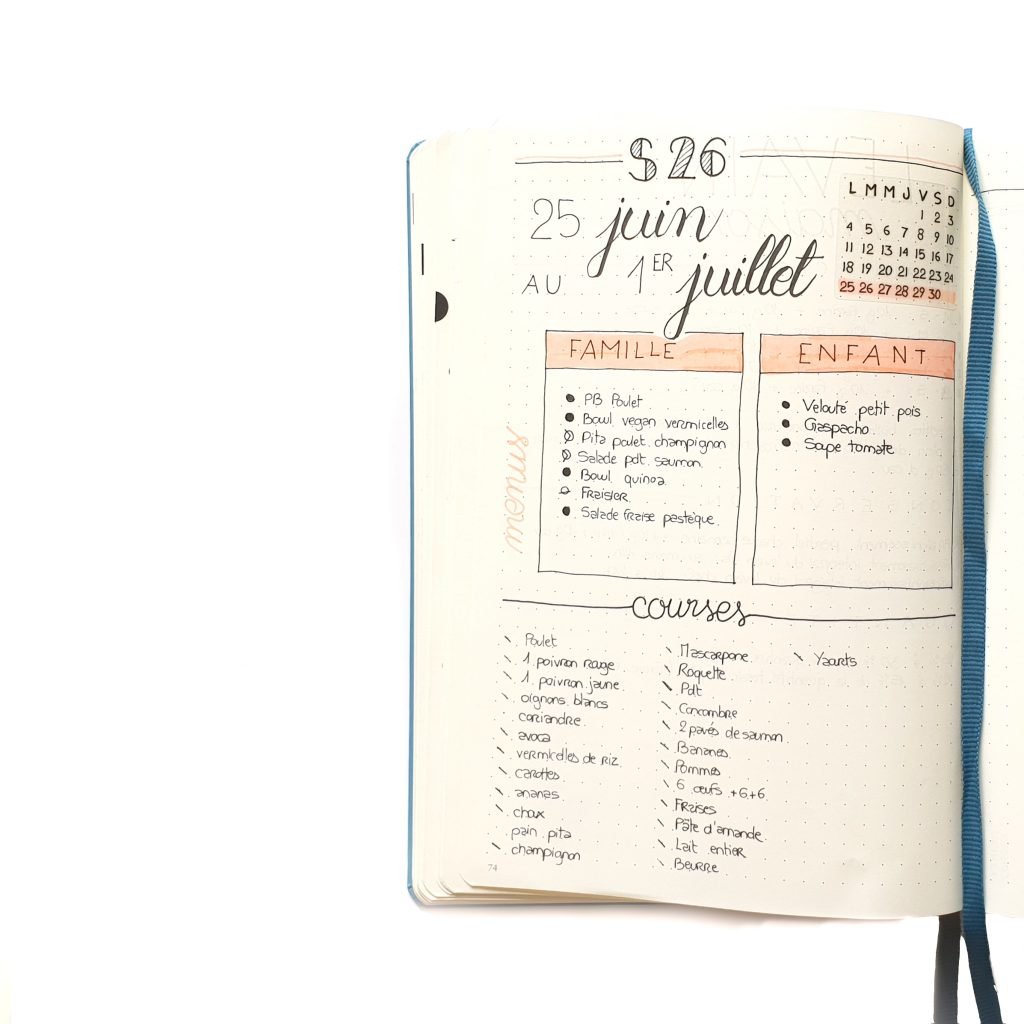 S 26
25 juin
AU 1ER juillet
L M M J V S D
1 2 3
4 5 6 7 8 9 10
11 12 13 14 15 16 17
18 19 20 21 22 23 24
25 26 27 28 29 30
menus
FAMILLE
PB Poulet
Bowl vegan vermicelles
Pita poulet champignon
Salade pdt saumon
Bowl quinoa
FRaisieR
Salade fraise pastèque
ENFANT
Velouté petit pois
Gaspacho
Soupe tomate
courses
Poulet
1 poivron rouge
1 poivron jaune
oignons blancs
coriandre
avoca
vermicelles de riz
carottes
ananas
choux
pain pita
champignon
Mascarpone
Roquette
Pdt
Concombre
2 pavés de saumon
Bananes
Pommes
6 œufs +6+6
FRaises
Pâte d'amande
Lait entier
Beurre
Yaourts
74